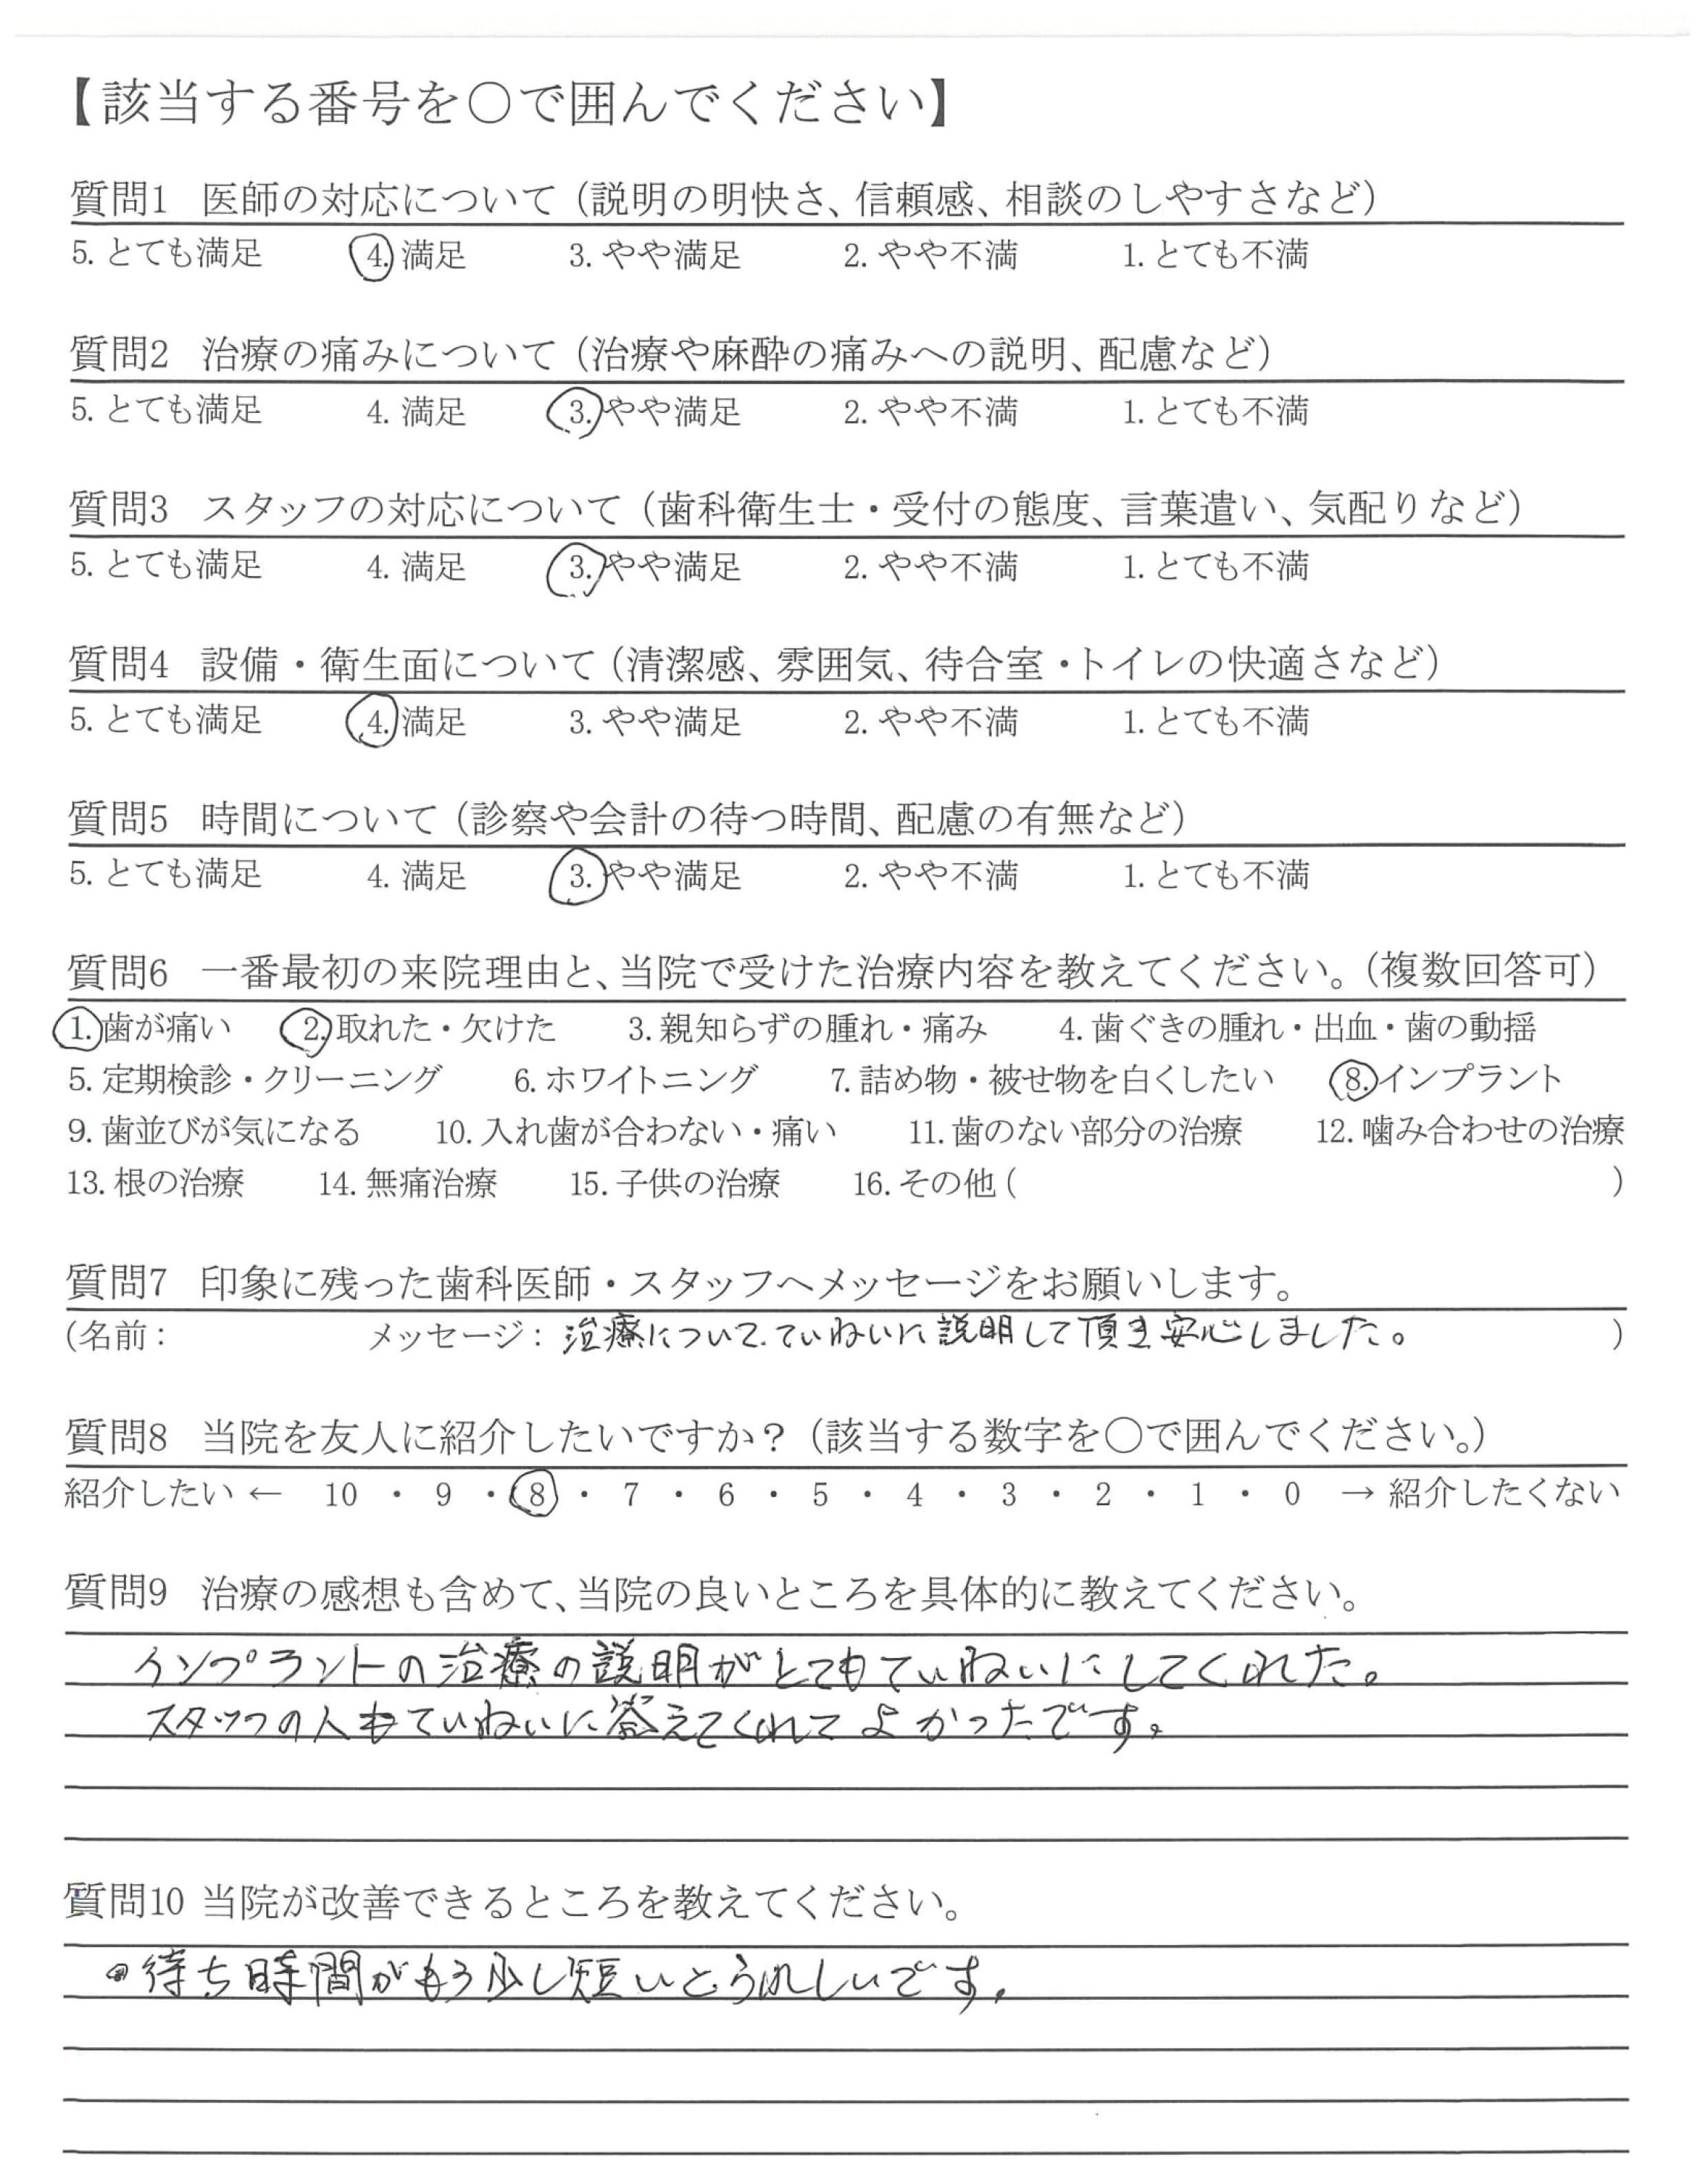 【該当する番号を○で囲んでください】
質問1 医師の対応について（説明の明快さ、信頼感、相談のしやすさなど）
5. とても満足 4. 満足 3. やや満足 2. やや不満 1. とても不満
質問2 治療の痛みについて（治療や麻酔の痛みへの説明、配慮など）
5. とても満足 4. 満足 3. やや満足 2. やや不満 1. とても不満
質問3 スタッフの対応について（歯科衛生士・受付の態度、言葉遣い、気配りなど）
5. とても満足 4. 満足 3. やや満足 2. やや不満 1. とても不満
質問4 設備・衛生面について（清潔感、雰囲気、待合室・トイレの快適さなど）
5. とても満足 4. 満足 3. やや満足 2. やや不満 1. とても不満
質問5 時間について（診察や会計の待つ時間、配慮の有無など）
5. とても満足 4. 満足 3. やや満足 2. やや不満 1. とても不満
質問6 一番最初の来院理由と、当院で受けた治療内容を教えてください。（複数回答可）
1. 歯が痛い 2. 取れた・欠けた 3. 親知らずの腫れ・痛み 4. 歯ぐきの腫れ・出血・歯の動揺
5. 定期検診・クリーニング 6. ホワイトニング 7. 詰め物・被せ物を白くしたい 8. インプラント
9. 歯並びが気になる 10. 入れ歯が合わない・痛い 11. 歯のない部分の治療 12. 噛み合わせの治療
13. 根の治療 14. 無痛治療 15. 子供の治療 16. その他 ( )
質問7 印象に残った歯科医師・スタッフへメッセージをお願いします。
(名前： メッセージ：治療について、ていねいに説明して頂き安心しました。 )
質問8 当院を友人に紹介したいですか？（該当する数字を○で囲んでください。）
紹介したい ← 10 ・ 9 ・ 8 ・ 7 ・ 6 ・ 5 ・ 4 ・ 3 ・ 2 ・ 1 ・ 0 → 紹介したくない
質問9 治療の感想も含めて、当院の良いところを具体的に教えてください。
インプラントの治療の説明がとてもていねいにしてくれた。
スタッフの人もていねいに答えてくれてよかったです。
質問10 当院が改善できるところを教えてください。
・待ち時間がもう少し短いとうれしいです。